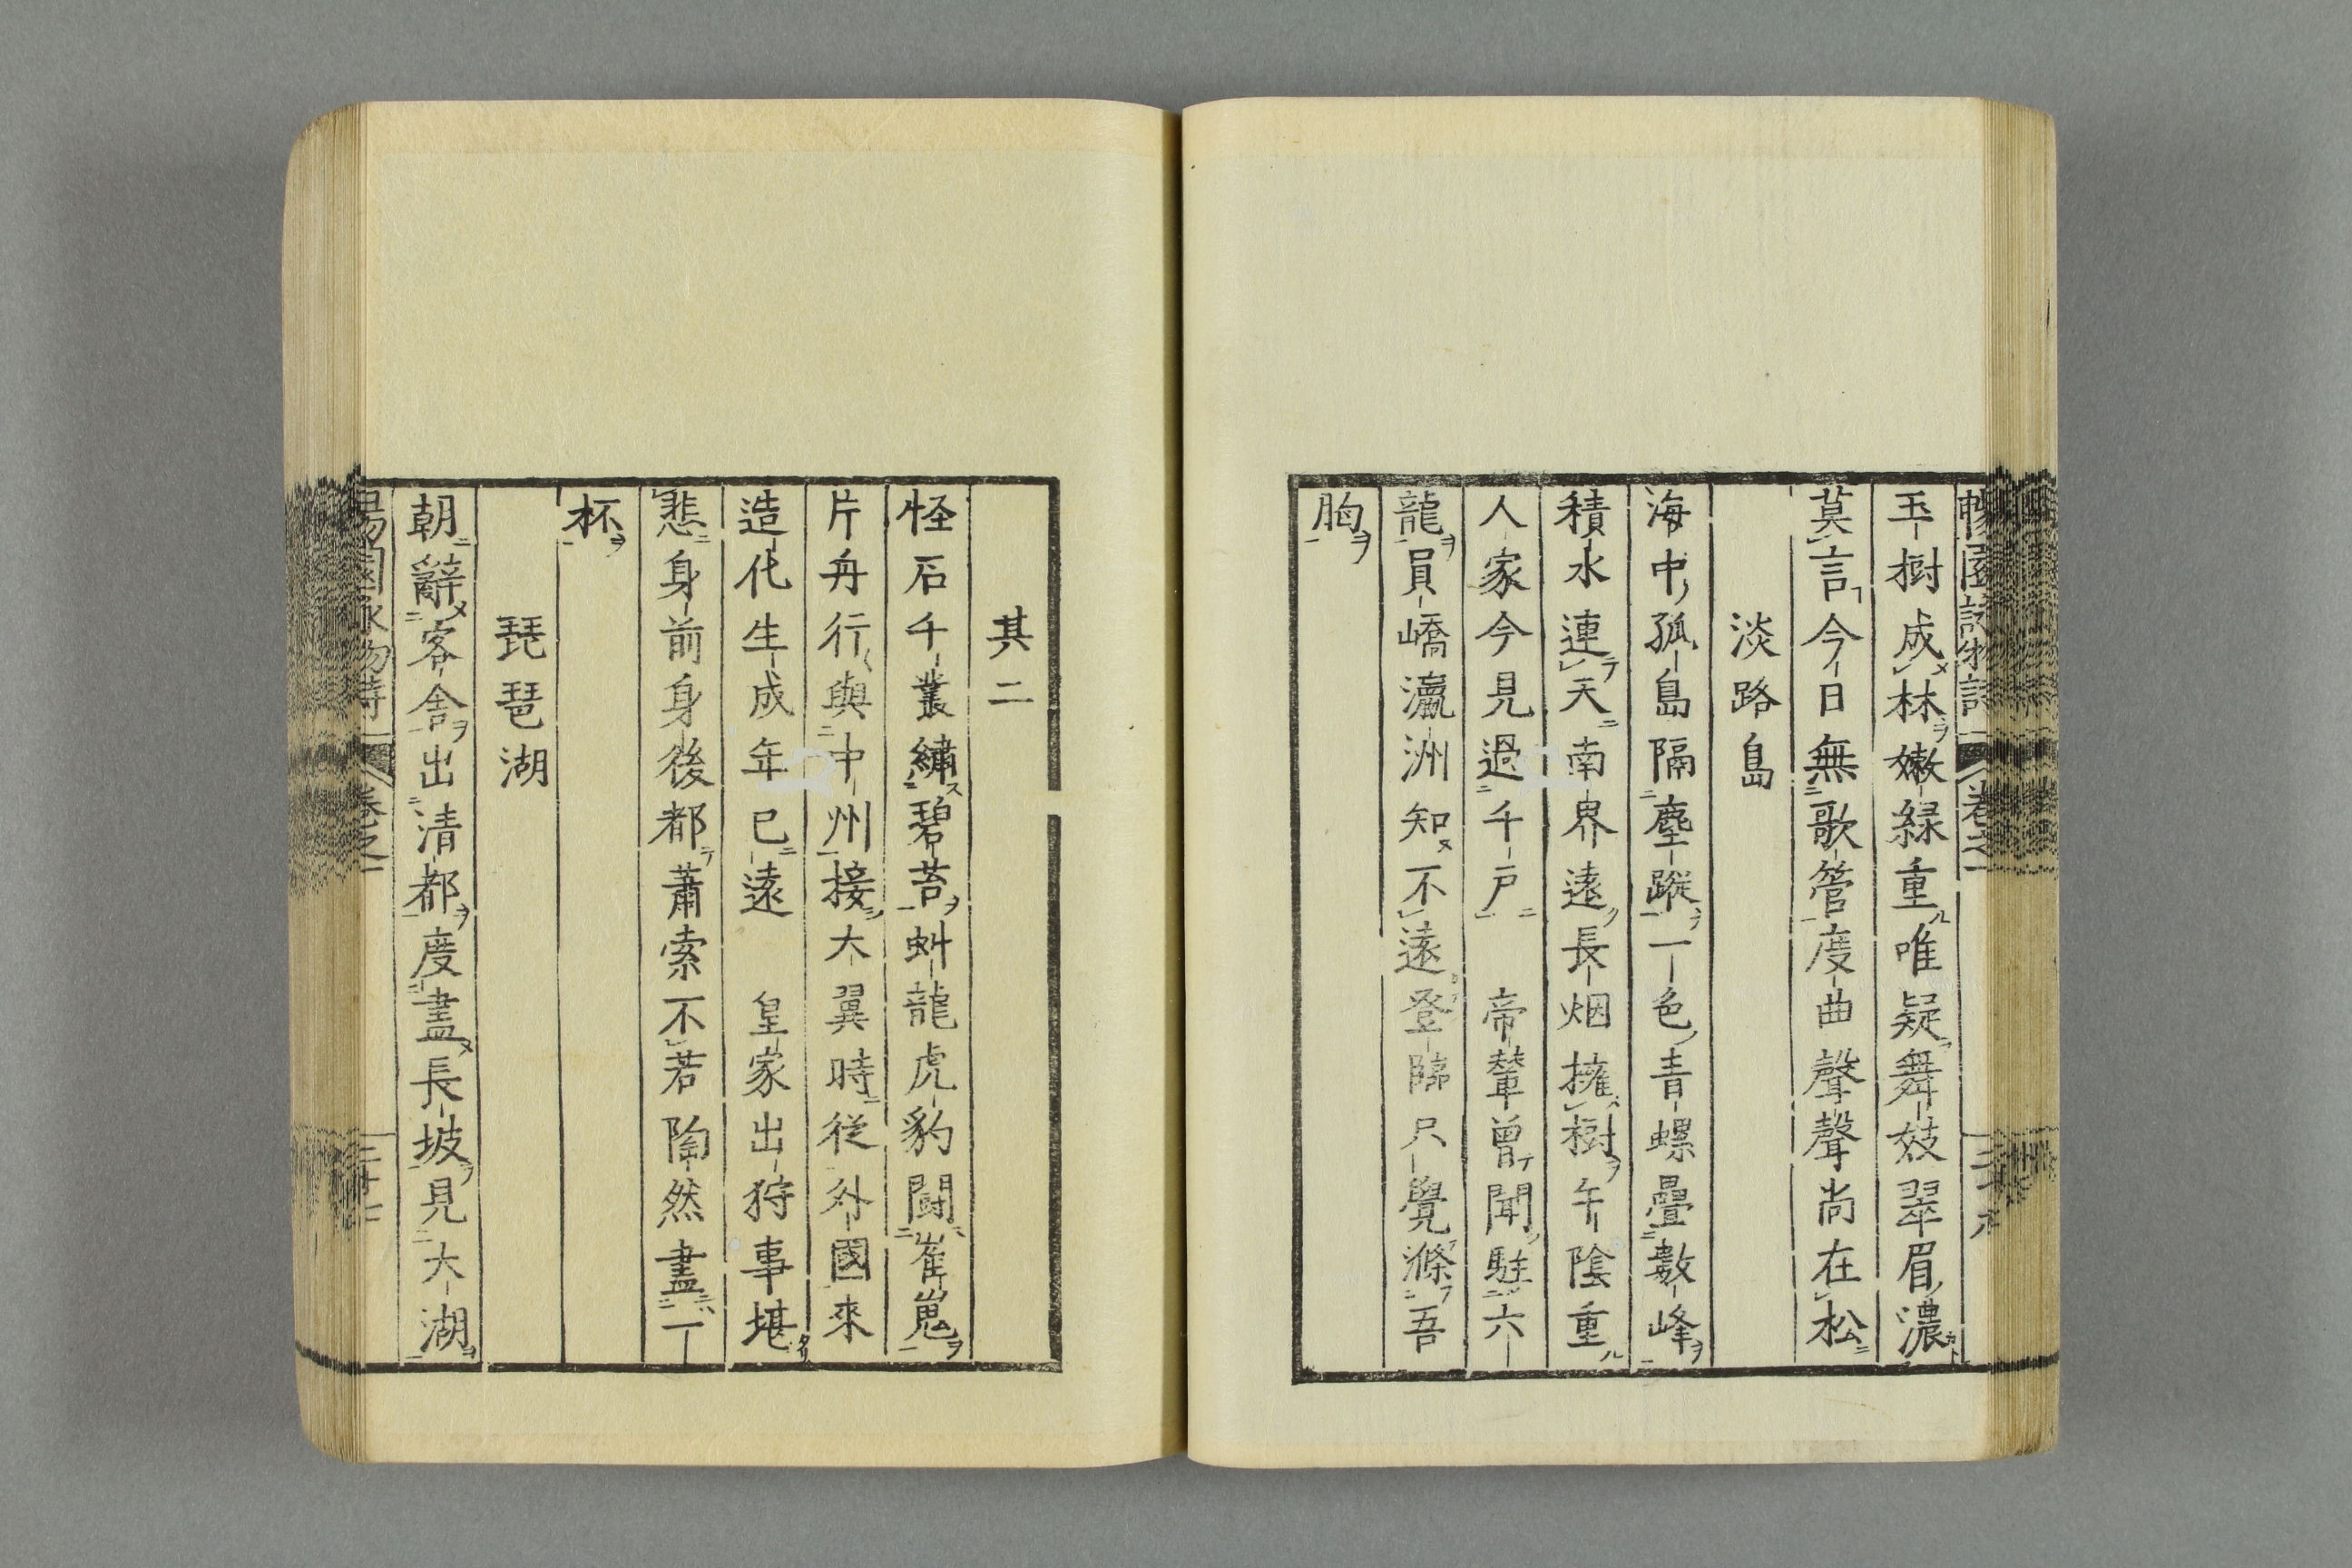 玉樹成林嫩緑重唯疑舞妓翠眉濃
莫言今日無歌管度曲聲聲尚在松
淡路島
海中孤島隔塵蹤一色青螺疊數峰
積水連天南界遠長烟擁樹午陰重
人家今見過千戸　帝輦曾聞駐六
龍員嶠瀛洲知不遠登臨只覺滌吾
胸
其二
怪石千叢繡碧苔虯龍虎豹闘崔嵬
片舟行與中州接大翼時從外國來
造化生成年已遠　皇家出狩事堪
悲身前身後都蕭索不若陶然盡一
杯
琵琶湖
朝辭客舎出清都度盡長坡見大湖